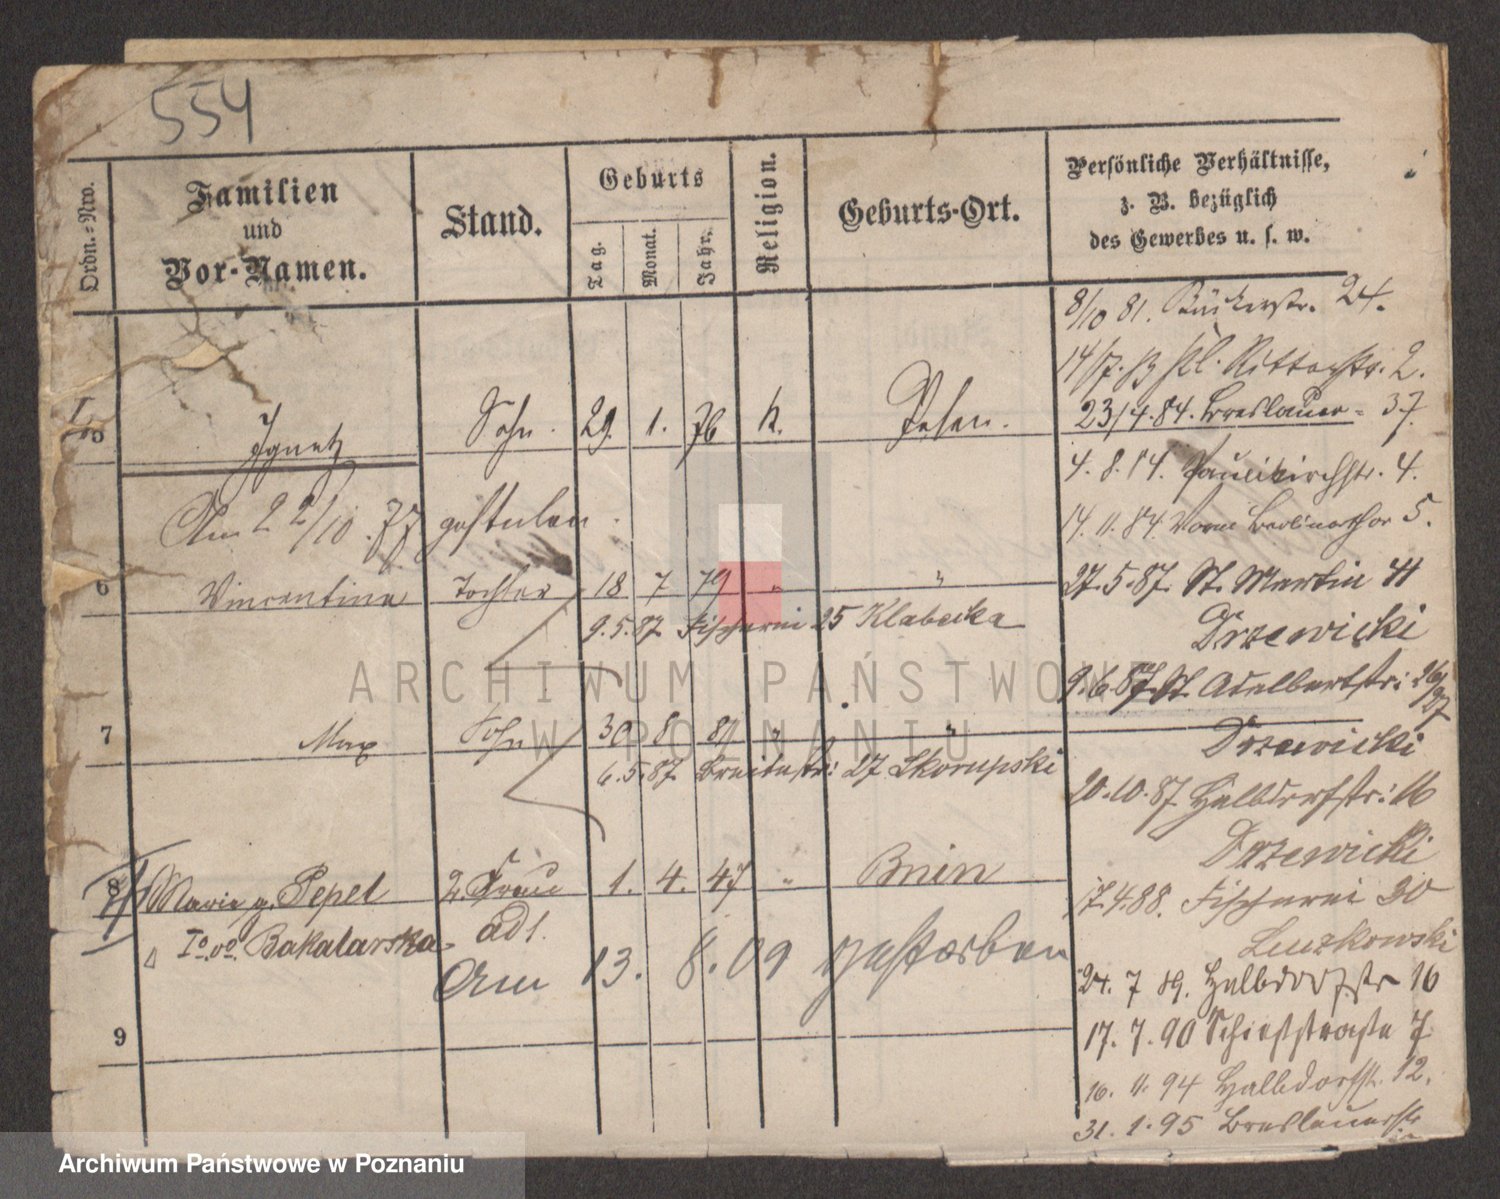 554
Ordn.=Nro.
Familien
und
Vor-Namen.
Stand.
Geburts
Tag.
Monat.
Jahr.
Religion.
Geburts-Ort.
Persönliche Verhältnisse,
z. B. bezüglich
des Gewerbes u. s. w.
8/10 81. Bäckerstr. 24.
14/7. 83 kl. Ritterstr. 2.
23/4.84. Breslauer= 37
5 Ignatz Sohn. 29. 1. 76 k. Posen.
4. 8. 84. Paulikirchstr. 4.
Am 22/10.77 gestorben.
14. 11. 84. Vorm Berlinerthor 5.
6 Vincentina Tochter 18 7 79 " "
27.5.87. St. Martin 41
Drzewicki
9.5.87 Fischerei 25 Klabecka
9.6.87. St. Adelbertstr: 26/27
7 Max Sohn 30 8 81 " "
Drzewicki
6.5.87 Breitestr: 27 Skorupski
20.10.87 Halbdorfstr: 16
Drzewicki
8 Marie g. Pepel 2. Frau 1. 4. 47 " Bnin
17.4.88. Fischerei 30
Io. vo. Bakalarska adl.
Luzkowski
Am 13. 8. 09 gestorben
24. 7 89. Halbdorfstr 16
9
17. 7. 90 Schießstraße 7
16. 11. 94 Halbdorfstr. 12.
31. 1. 95 Breslauerstr
ARCHIWUM PAŃSTWOWE
W POZNANIU
Archiwum Państwowe w Poznaniu